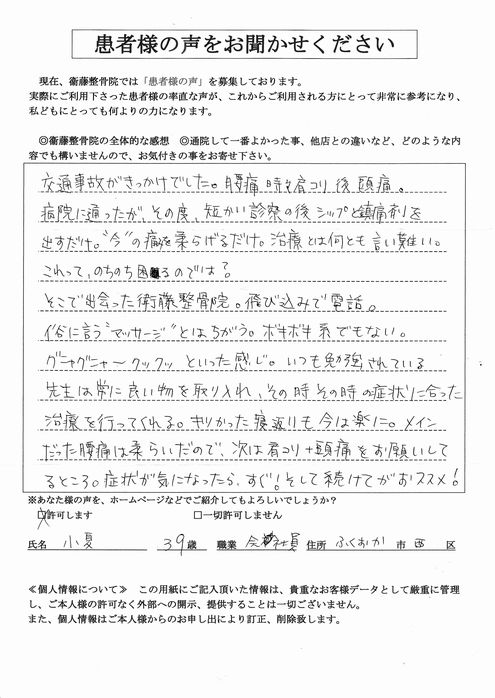 患者様の声をお聞かせください
現在、衞藤整骨院では「患者様の声」を募集しております。
実際にご利用下さった患者様の率直な声が、これからご利用される方にとって非常に参考になり、
私どもにとっても何よりの力になります。
◎衞藤整骨院の全体的な感想 ◎通院して一番よかった事、他店との違いなど、どのような内
容でも構いませんので、お気付きの事をお寄せ下さい。
交通事故がきっかけでした。腰痛 時々肩コリ 後 頭痛。
病院に通ったが、その度、短かい診察の後シップと鎮痛剤を
出すだけ。"今"の痛を柔らげるだけ。治療とは何とも言い難い。
これって、のちのち困るのでは?
そこで出会った衛藤整骨院。飛び込みで電話。
俗に言う"マッサージ"とはちがう。ボキボキ系でもない。
グニャグニャ〜クックッといった感じ。いつも勉強されている
先生は常に良い物を取り入れ、その時その時の症状に合った
治療を行ってくれる。きりかった寝返りも今は楽に。メイン
だった腰痛は柔らいだので、次は肩コリ+頭痛をお願いして
るところ。症状が気になったら、すぐ!そして続けてがおススメ!
※あなた様の声を、ホームページなどでご紹介してもよろしいでしょうか?
☑許可します □一切許可しません
氏名 小夏 39歳 職業 会社員 住所 ふくおか 市 西 区
≪個人情報について≫ この用紙にご記入頂いた情報は、貴重なお客様データとして厳重に管理
し、ご本人様の許可なく外部への開示、提供することは一切ございません。
また、個人情報はご本人様からのお申し出により訂正、削除致します。